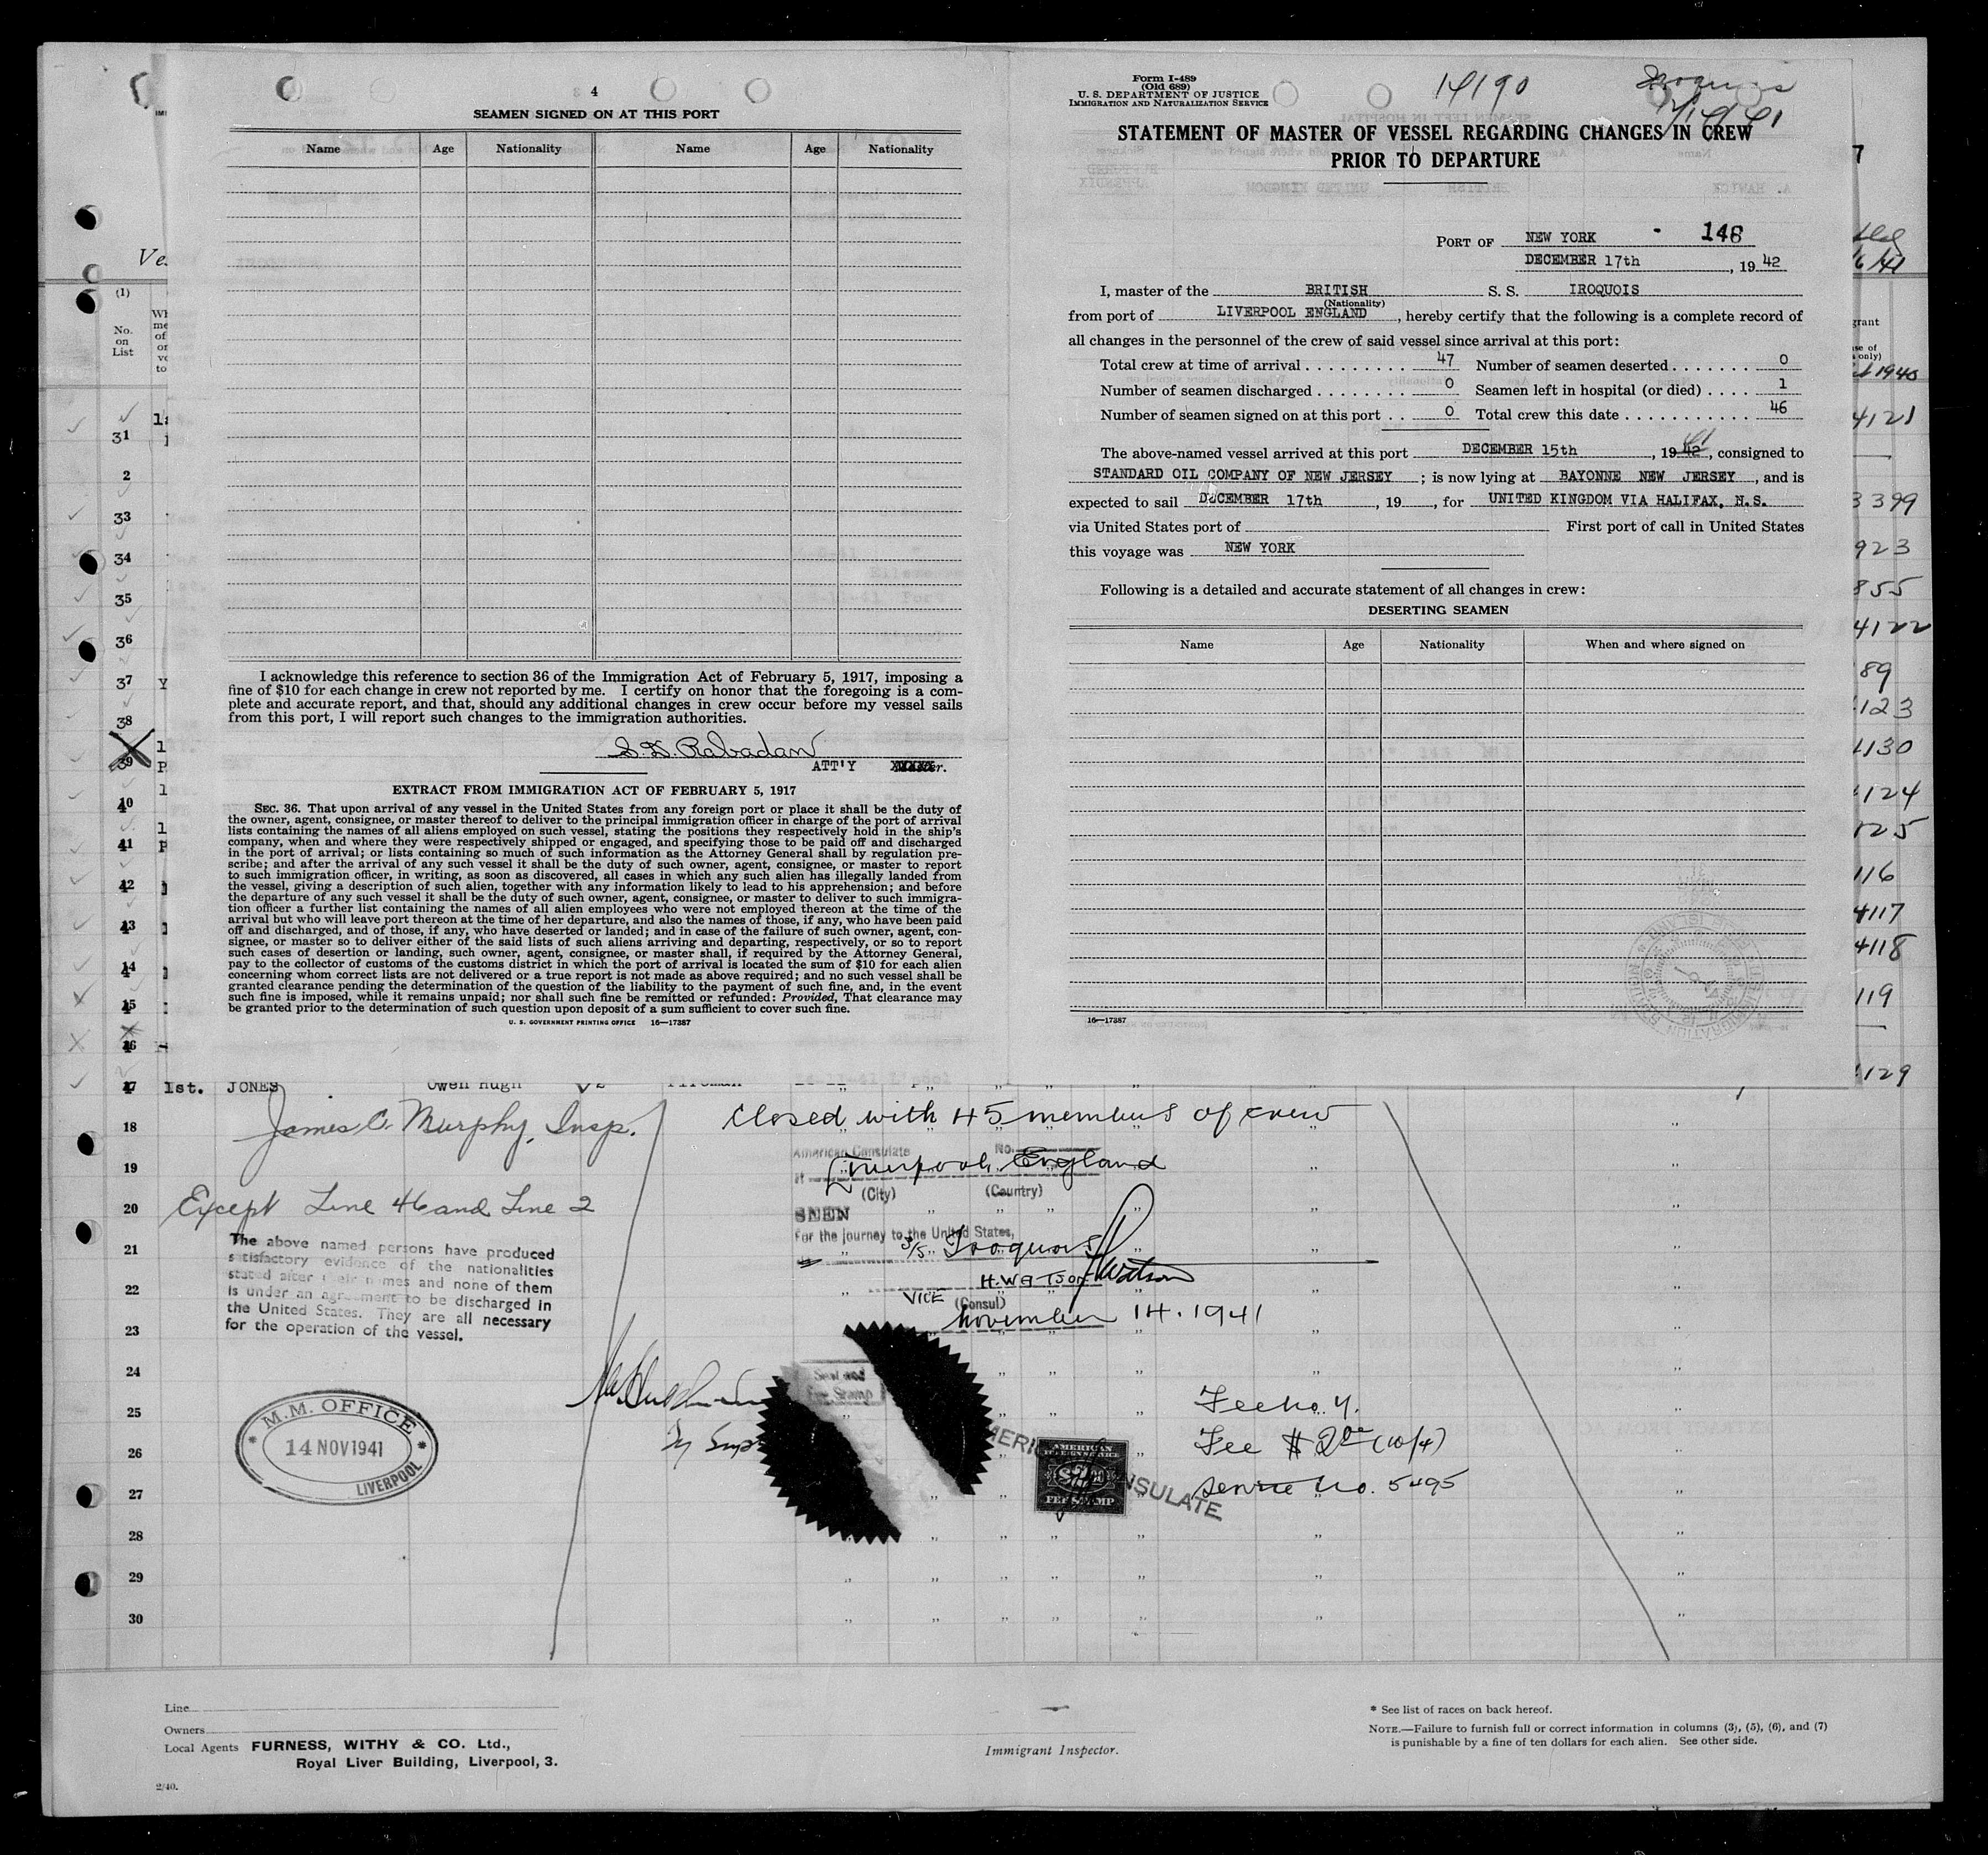 4
SEAMEN SIGNED ON AT THIS PORT
Name Age Nationality Name Age Nationality
I acknowledge this reference to section 36 of the Immigration Act of February 5, 1917, imposing a
fine of $10 for each change in crew not reported by me. I certify on honor that the foregoing is a com-
plete and accurate report, and that, should any additional changes in crew occur before my vessel sails
from this port, I will report such changes to the immigration authorities.
S. D. Rabadan
ATT'Y Master.
EXTRACT FROM IMMIGRATION ACT OF FEBRUARY 5, 1917
SEC. 36. That upon arrival of any vessel in the United States from any foreign port or place it shall be the duty of
the owner, agent, consignee, or master thereof to deliver to the principal immigration officer in charge of the port of arrival
lists containing the names of all aliens employed on such vessel, stating the positions they respectively hold in the ship's
company, when and where they were respectively shipped or engaged, and specifying those to be paid off and discharged
in the port of arrival; or lists containing so much of such information as the Attorney General shall by regulation pre-
scribe; and after the arrival of any such vessel it shall be the duty of such owner, agent, consignee, or master to report
to such immigration officer, in writing, as soon as discovered, all cases in which any such alien has illegally landed from
the vessel, giving a description of such alien, together with any information likely to lead to his apprehension; and before
the departure of any such vessel it shall be the duty of such owner, agent, consignee, or master to deliver to such immigra-
tion officer a further list containing the names of all alien employees who were not employed thereon at the time of the
arrival but who will leave port thereon at the time of her departure, and also the names of those, if any, who have been paid
off and discharged, and of those, if any, who have deserted or landed; and in case of the failure of such owner, agent, con-
signee, or master so to deliver either of the said lists of such aliens arriving and departing, respectively, or so to report
such cases of desertion or landing, such owner, agent, consignee, or master shall, if required by the Attorney General,
pay to the collector of customs of the customs district in which the port of arrival is located the sum of $10 for each alien
concerning whom correct lists are not delivered or a true report is not made as above required; and no such vessel shall be
granted clearance pending the determination of the question of the liability to the payment of such fine, and, in the event
such fine is imposed, while it remains unpaid; nor shall such fine be remitted or refunded: Provided, That clearance may
be granted prior to the determination of such question upon deposit of a sum sufficient to cover such fine.
U. S. GOVERNMENT PRINTING OFFICE 16—17387
Form I-489
(Old 689)
U. S. DEPARTMENT OF JUSTICE
IMMIGRATION AND NATURALIZATION SERVICE
14190
Iroquois
STATEMENT OF MASTER OF VESSEL REGARDING CHANGES IN CREW
PRIOR TO DEPARTURE
PORT OF NEW YORK - 148
DECEMBER 17th, 1942
I, master of the BRITISH S. S. IROQUOIS
(Nationality)
from port of LIVERPOOL ENGLAND, hereby certify that the following is a complete record of
all changes in the personnel of the crew of said vessel since arrival at this port:
Total crew at time of arrival 47 Number of seamen deserted 0
Number of seamen discharged 0 Seamen left in hospital (or died) 1
Number of seamen signed on at this port 0 Total crew this date 46
The above-named vessel arrived at this port DECEMBER 15th, 1942 41, consigned to
STANDARD OIL COMPANY OF NEW JERSEY; is now lying at BAYONNE NEW JERSEY, and is
expected to sail DECEMBER 17th, 19, for UNITED KINGDOM VIA HALIFAX, N.S.
via United States port of First port of call in United States
this voyage was NEW YORK
Following is a detailed and accurate statement of all changes in crew:
DESERTING SEAMEN
Name Age Nationality When and where signed on
16—17387
(1)
No.
on
List
31
2
33
34
35
36
37
38
39
40
41
42
43
44
45
46
47 1st. JONES Owen Hugh
18
19
20
21
22
23
24
25
26
27
28
29
30
4121
3399
923
855
4122
89
123
130
124
125
116
4117
4118
119
129
James C. Murphy, Insp.
Closed with 45 members of crew
Except Line 46 and Line 2
The above named persons have produced
satisfactory evidence of the nationalities
stated after their names and none of them
is under an agreement to be discharged in
the United States. They are all necessary
for the operation of the vessel.
M.M. OFFICE
14 NOV 1941
LIVERPOOL
American Consulate No.
at Liverpool, England
(City) (Country)
SEEN
For the journey to the United States,
S/S Iroquois
H. WATSON
VICE (Consul)
November 14. 1941
Seal and
Fee Stamp
AMERICAN CONSULATE
AMERICAN
FOREIGN SERVICE
$2.00
FEE STAMP
Fee No. 4.
Fee $2.00 (10/4)
Service No. 5495
Line
Owners
Local Agents FURNESS, WITHY & CO. Ltd.,
Royal Liver Building, Liverpool, 3.
2/40.
Immigrant Inspector.
* See list of races on back hereof.
NOTE.—Failure to furnish full or correct information in columns (3), (5), (6), and (7)
is punishable by a fine of ten dollars for each alien. See other side.